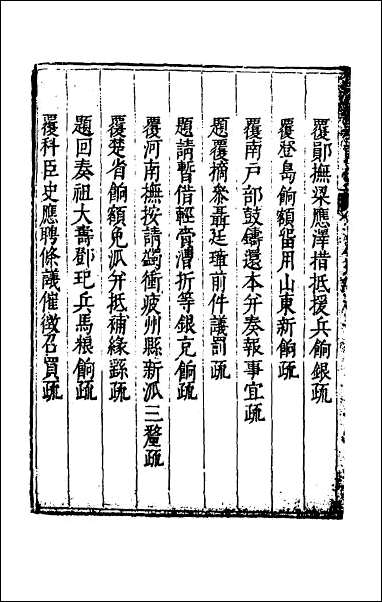 覆鄖撫梁應澤措抵援兵餉銀疏
覆登島餉額留用山東新餉疏
覆南戶部鼓鑄還本并奏報事宜疏
題覆摘參聶廷璉前件議罰疏
題請暫借輕齎漕折等銀克餉疏
覆河南撫按請蠲衝疲州縣新派三釐疏
覆楚省餉額免派并抵補緣繇疏
題回奏祖大壽鄧玘兵馬糧餉疏
覆科臣史應聘條議催徵召買疏